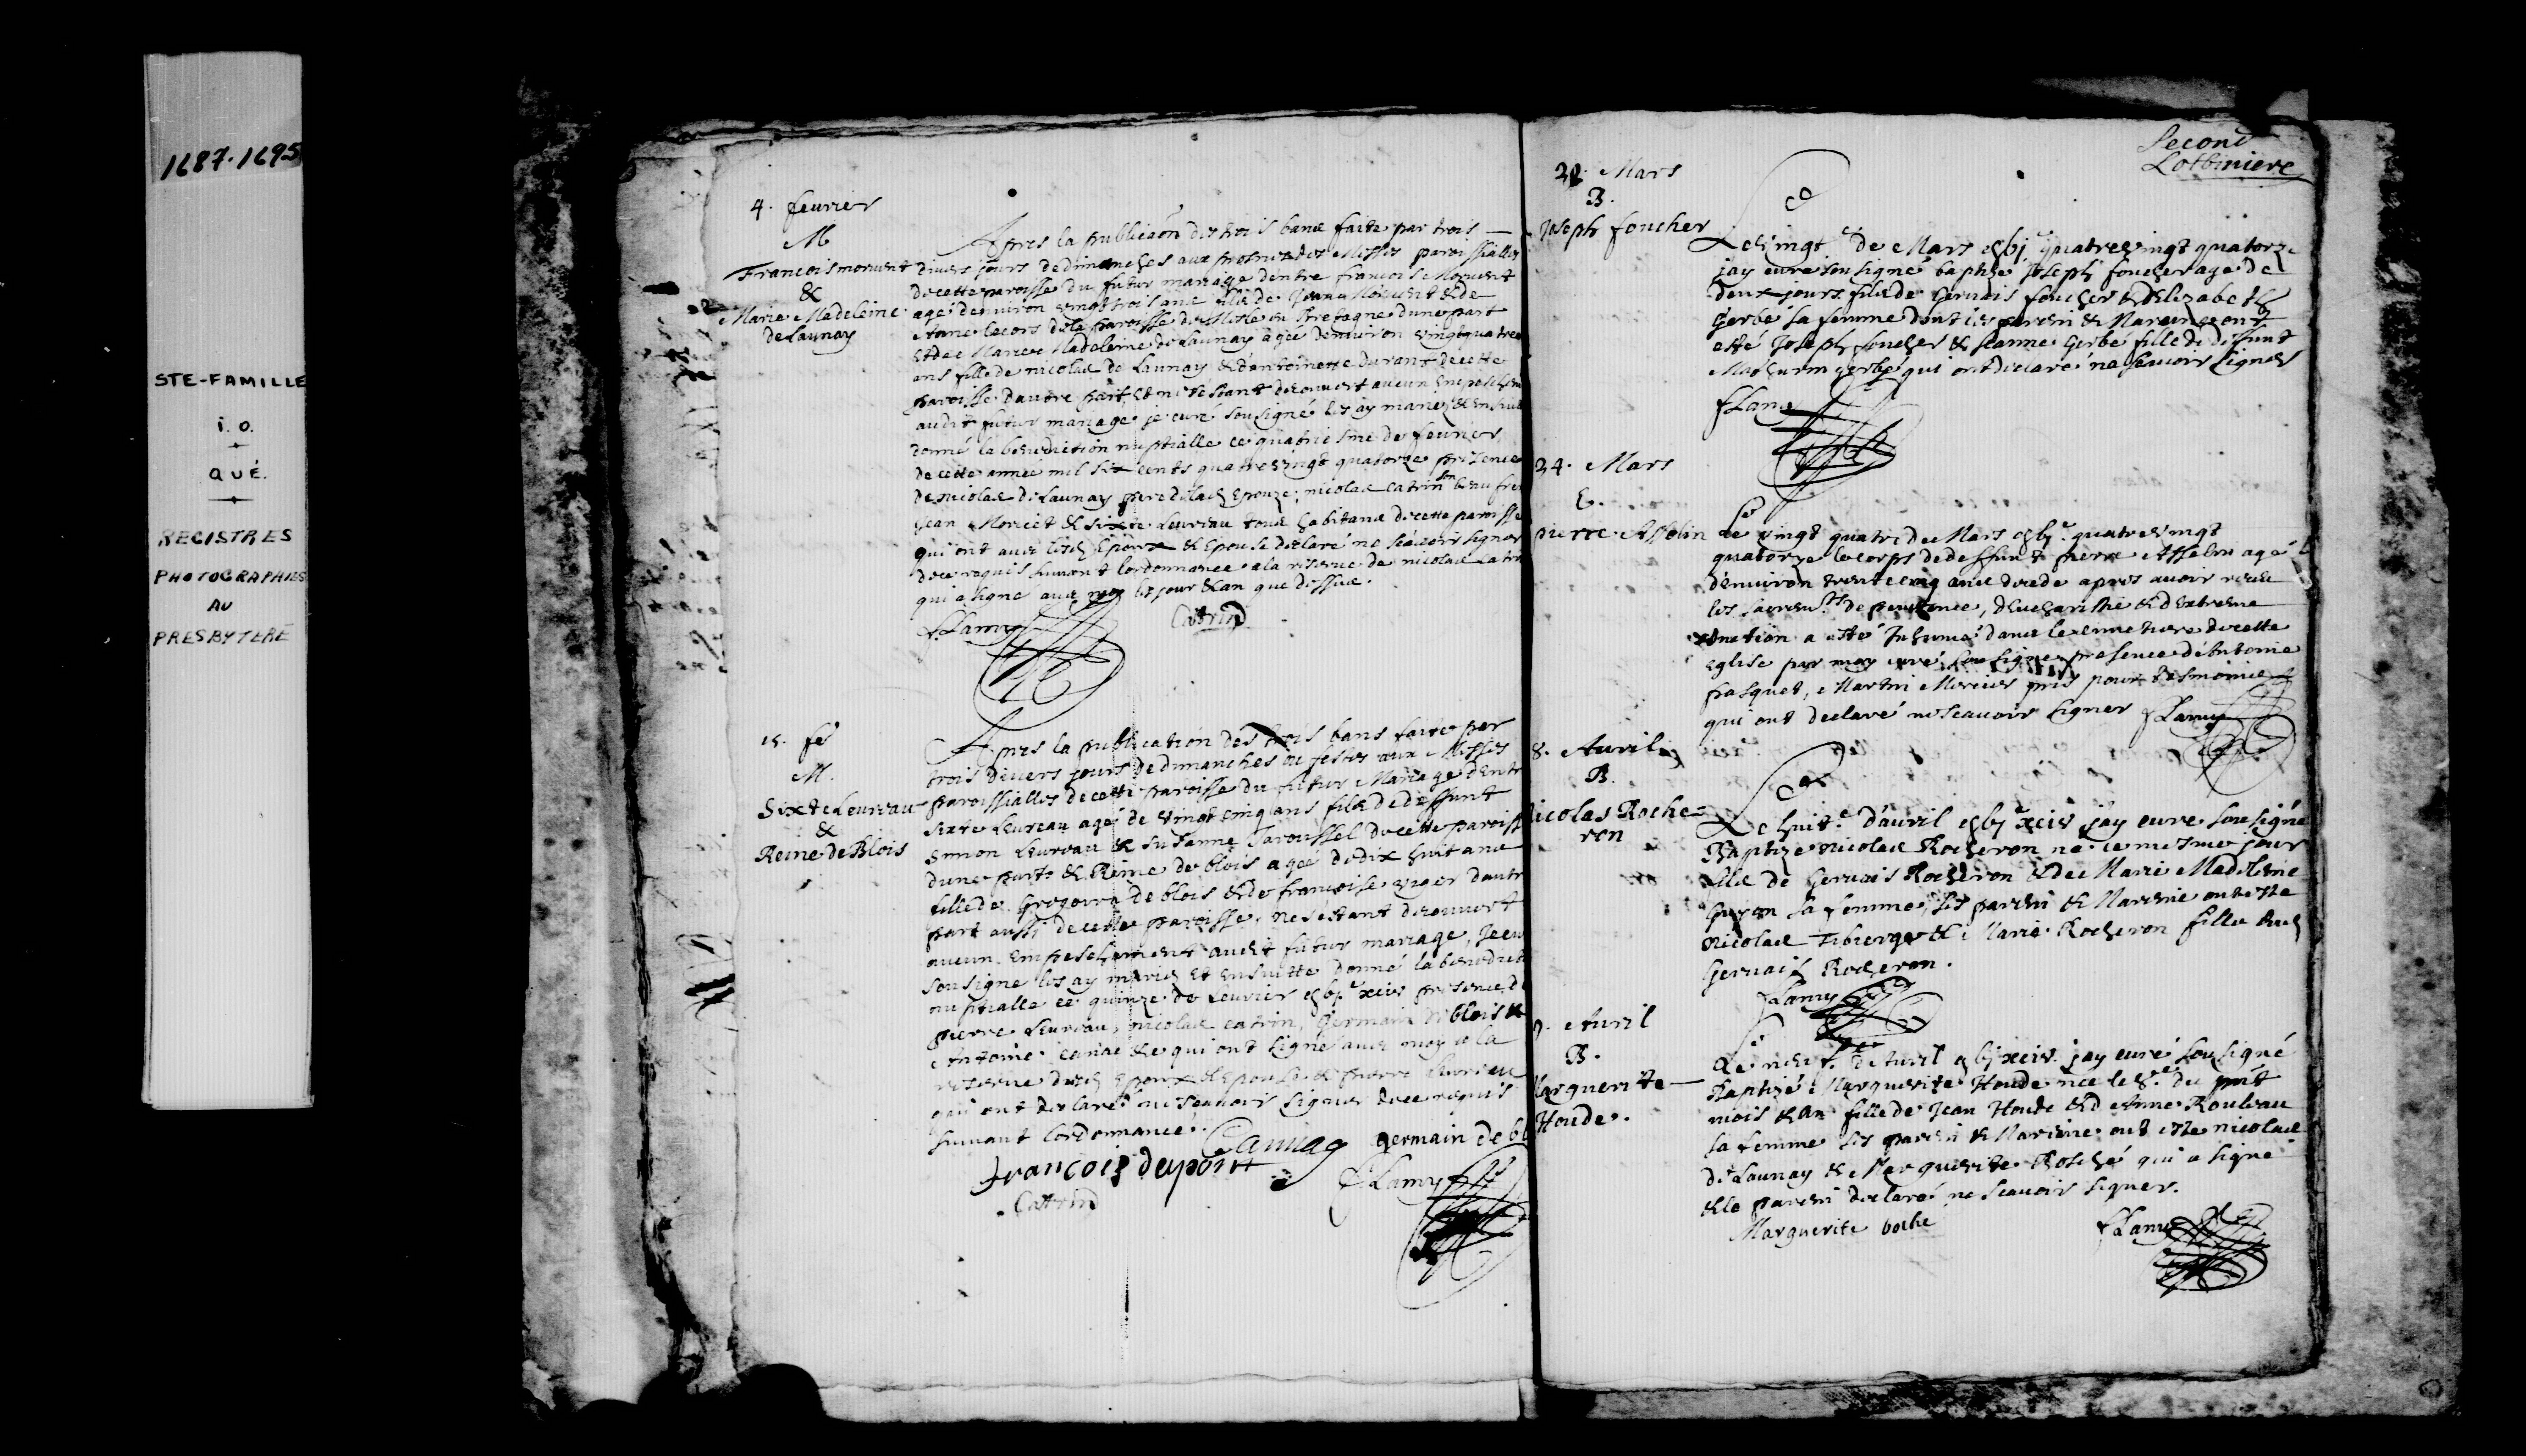 1687-1695
STE-FAMILLE
I. O.
QUÉ.
REGISTRES
PHOTOGRAPHIÉS
AU
PRESBYTÈRE
4. feurier
M
Francois moruent
&
Marie Madeleine
de Launay
Apres la publicaon des trois bans faite par trois
divers jours de dimanches aux prosnes des Messes paroissialles
de cette paroisse du futur mariage dentre francois Moruent
agé denuiron vingt trois ans fils de Jean Moruent & de
Anne lecors de la paroisse de en Bretagne dune part
et de Marie Madeleine de Launay agée denuiron vingt quatre
ans fille de nicolas de Launay & dantoinette durant de cette
paroisse dautre part, et ne sestant decouuert aucun empeschem
audit futur mariage je curé sousigné les ay mariez & ensuite
donné la benediction nuptialle ce quatriesme de feurier
de cette année mil six cents quatre vingt quatorze presence
de nicolas de Launay pere de lad epouze; nicolas catrin son beau frer
Jean Moricet & sixte Leureau tous habitans de cette paroisse
qui ont auec lesd Epoux & Epouse declaré ne scauoir signer
de ce requis suiuant lordonnance a la reserue de nicolas catrin
qui a signe auec moy les jour & an que dessus.
F. Lamy
Cattrin
15. fe
M.
Sixte Leureau
&
Reine de Blois
Apres la publication des trois bans faite par
trois divers jours de dimanches ou festes aux Messes
paroissialles de cette paroisse du futur Mariage dentr
sixte Leureau agé de vingt cinq ans fils de deffunt
Simon Leureau & Suzanne Jaroussel de cette paroiss
dune part & Reine de blois agée de dix huit ans
fille de Gregoire de blois & de francoise viger dautr
part aussi de cette paroisse, ne sestant decouuert
aucun empeschement audit futur mariage, Je cu
sousigne les ay mariez et ensuitte donné la benedict
nuptialle ce quinze de feurier presence d
pierre Leureau, nicolas catrin, Germain de blois &
Antoine qui ont signé auec moy a la
reserue desd Epoux & Epouse & pierre Leureau
qui ont declaré ne scauoir signer de ce requis
suiuant lordonnance.
germain de bl
francois dupont
F Lamy
Cattrin
Second
Lotbiniere
Mars
B.
Joseph foucher
Le vingt de Mars quatre vingt quatorze
jay curé sousigné baptize Joseph foucher age de
deux jours fils de Geruais foucher & delizabeth
Gerbé sa femme dont les parein & Mareinne ont
esté Joseph foucher & Jeanne Gerbé fille de defunt
Mathurin gerbé qui ont declaré ne scauoir signer
F Lamy
24. Mars
E.
pierre Asselin
Le vingt quatre de Mars quatre vingt
quatorze le corps de deffunt pierre Asselin agé
denuiron trente cinq ans decede apres auoir receu
les sacremts de penitence, deucharistie & dextreme
onction a esté Inhumé dans le cimetiere de cette
Eglise par moy curé sousigne presence de Antoine
frasquet, Martin Mercier pris pour tesmoins
qui ont declaré ne scauoir signer F Lamy
8. Auril
B.
Nicolas Roche=
ron
Le huite dauril xciv jay curé sousigné
Baptize nicolas Rocheron né le mesme jour
fils de Geruais Rocheron & de Marie Madeleine
Guyon sa femme, les parein & Mareine ont esté
nicolas & Marie Rocheron fille dud
Geruais Rocheron.
F Lamy
9. Auril
B.
Marguerite
Houde.
Le neuf de Auril xciv. jay curé sousigné
Baptizé Marguerite Houde née le 8e du pnt
mois & an fille de Jean Houde & d Anne Rouleau
sa femme les parein & Mareine ont esté nicolas
de Launay & Marguerite qui a signé
& le parein declaré ne scauoir signer.
Marguerite
F Lamy